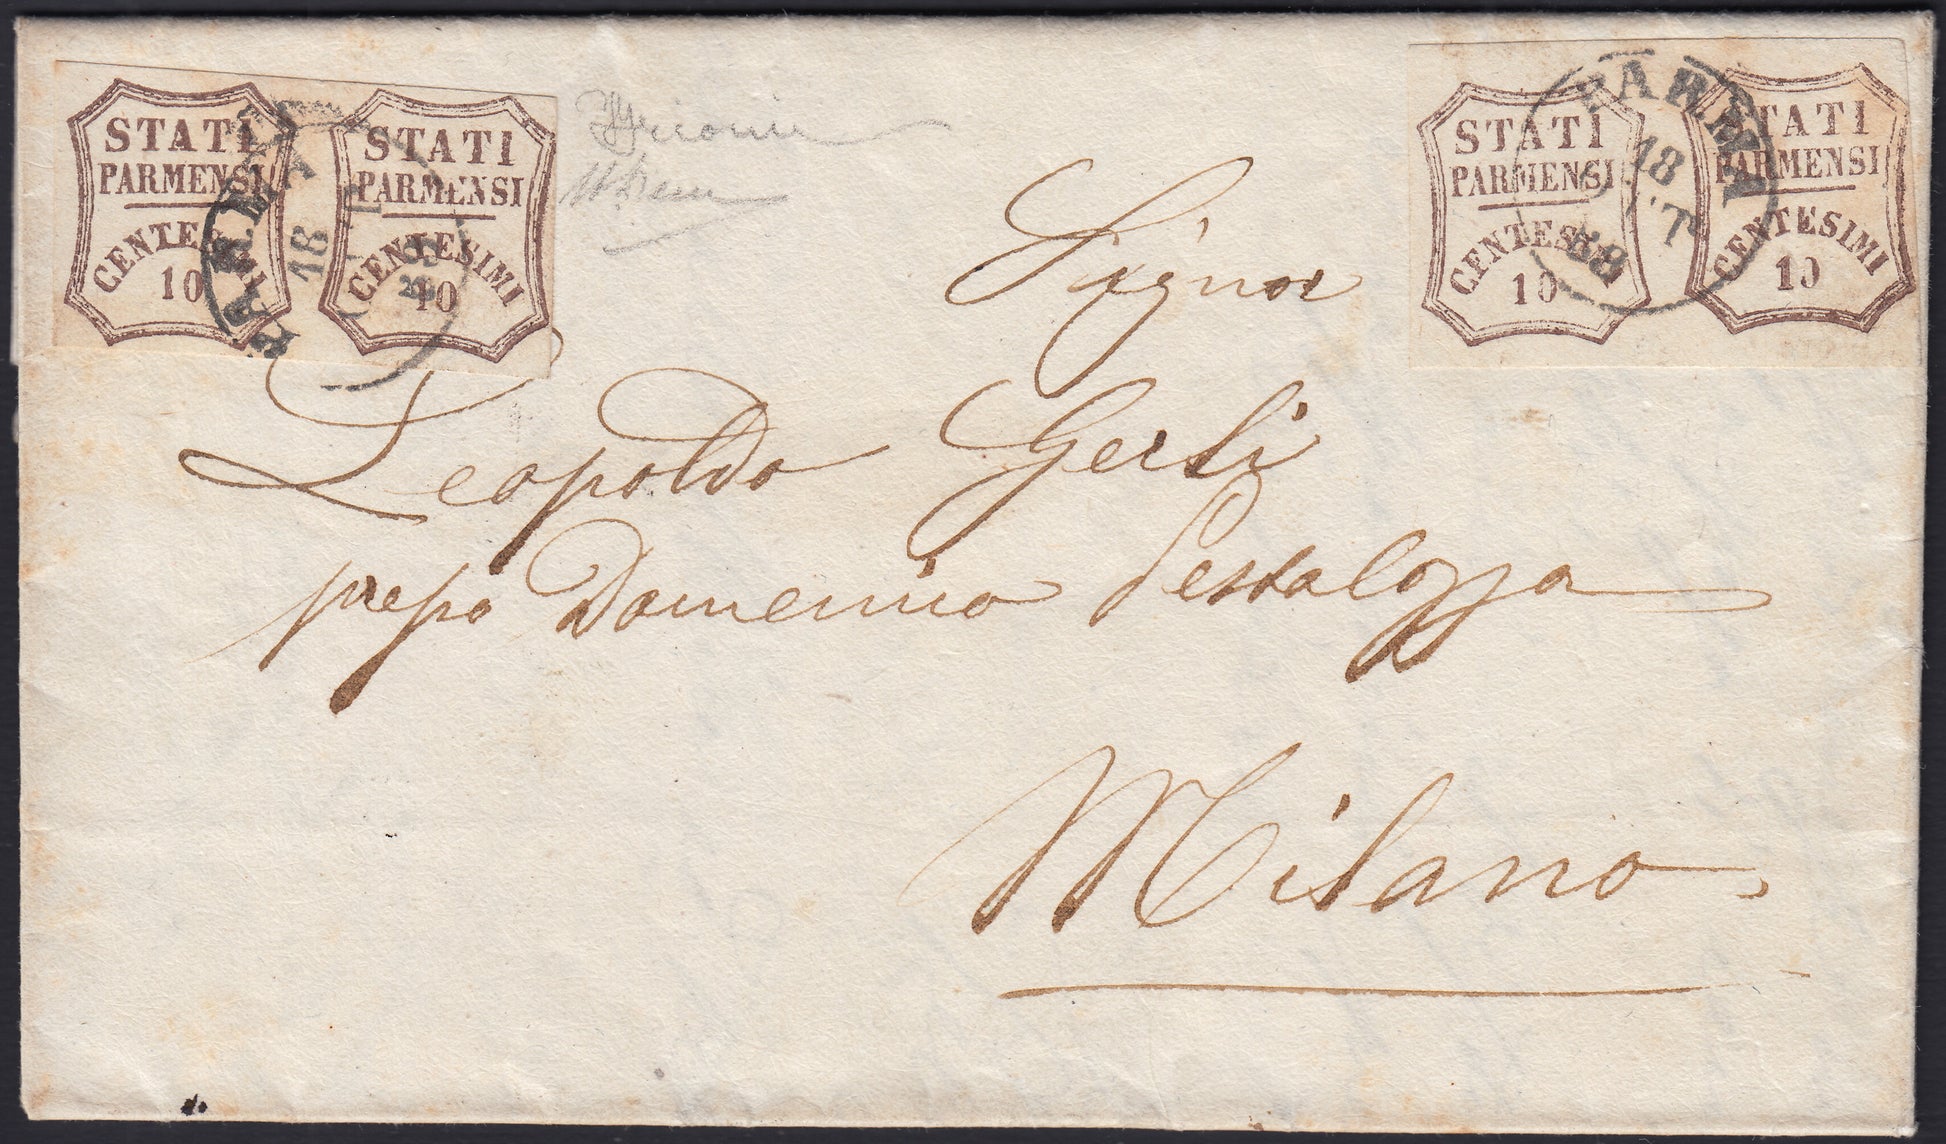 STATI
PARMENSI
CENTESIMI
10
STATI
PARMENSI
CENTESIMI
10
PARMA
18
STATI
PARMENSI
CENTESIMI
10
STATI
PARMENSI
CENTESIMI
10
PARMA
18
59
Signor
Leopoldo Gerli
prepo Domenico Pestalozza
Milano